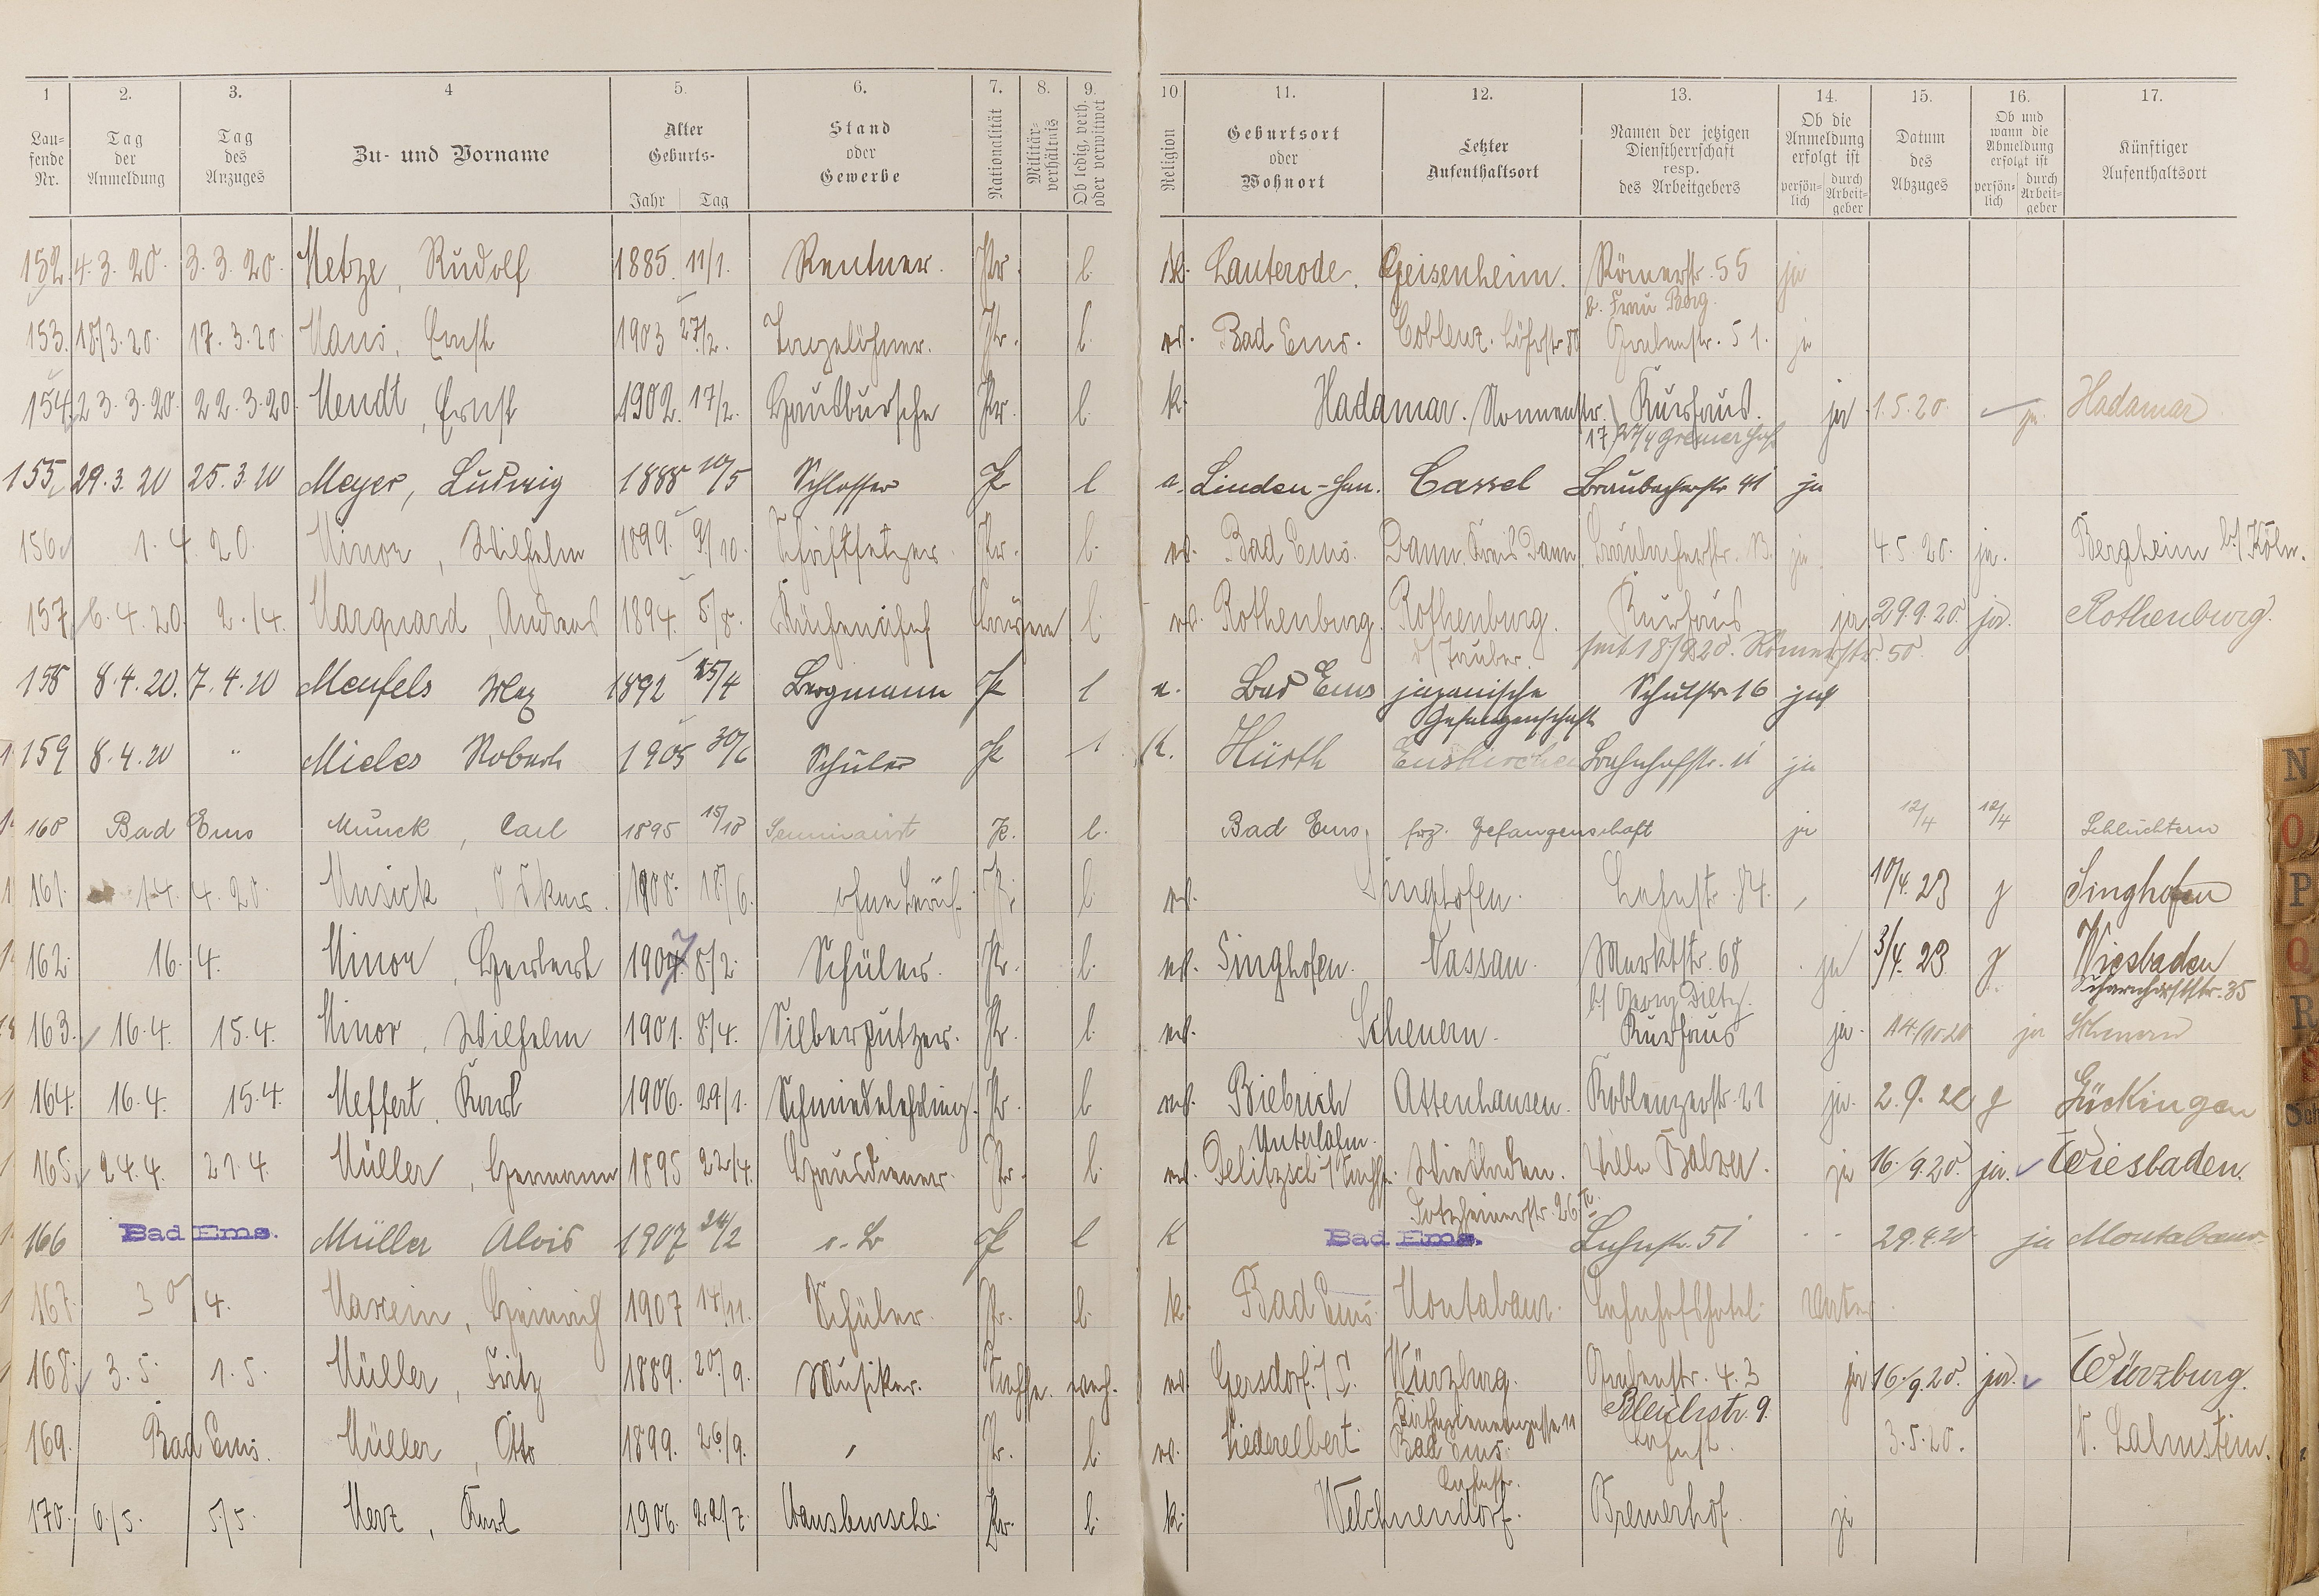 1 2. 3. 4 5. 6. 7. 8. 9. 10 11. 12. 13. 14. 15. 16. 17.
Lau-fende Nr. Tag der Anmeldung Tag des Anzuges Zu- und Vorname Alter Geburts- Jahr Tag Stand oder Gewerbe Nationalität Militär-verhältnis Ob ledig, verh. oder verwitwet Religion Geburtsort oder Wohnort Letzter Aufenthaltsort Namen der jetzigen Dienstherrschaft resp. des Arbeitgebers Ob die Anmeldung erfolgt ist persön-lich durch Arbeit-geber Datum des Abzuges Ob und wann die Abmeldung erfolgt ist persön-lich durch Arbeit-geber Künftiger Aufenthaltsort
152. 4.3.20. 3.3.20. Metze, Rudolf 1885. 11/1. Rentner. Pr. l. k. Lauterode. Geisenheim. Römerstr. 55 ja
b. Frau Berg.
153. 18/3.20. 17.3.20. Maus, Ernst 1903 27/2. Tagelöhner. Pr. l. ev. Bad Ems. Coblenz. Löhrstr. 80 Grabenstr. 51. ja
154. 23.3.20. 22.3.20. Mendt, Ernst 1902. 17/2. Hausbursche Pr. l. k. Hadamar. Nonnenstr. 17 Kurhaus. ja 1.5.20. ja Hadamar
155. 29.3.20 25.3.20 Meyer, Ludwig 1888 10/5 Schlosser Pr l e. Linden-Han. Cassel Braubacherstr 41 ja
156. 1.4.20. Minor, Wilhelm 1899. 9/10. Schriftsetzer. Pr. l. ev. Bad Ems. Daun. Kreis Daun. Braubacherstr. ja 4.5.20. ja. Bergheim b/Köln.
157. 6.4.20. 2./4. Marquard, Andreas 1894. 5/8. Küchenchef Bayern l. ev. Rothenburg. Rothenburg. Kurhaus ja 29.9.20. ja. Rothenburg.
o/Tauber. seit 18/9 20. Römerstr. 50.
158 8.4.20. 7.4.20 Menfels Max 1892 25/4 Bergmann Pr l e. Bad Ems japanische Schulstr 16 ja
Gefangenschaft
159 8.4.20 " Mieles Robert 1905 30/6 Schüler Pr l k. Hürth Euskirchen Bahnhofstr. 11 ja
160 Bad Ems Munck, Carl 1895 15/10 Seminarist Pr. l. Bad Ems, frz. Gefangenschaft ja 12/4 12/4 Schlüchtern
161. 14.4.20. Musick, Oskar. 1908. 18/6. ohne Beruf. Pr. l. ev. Singhofen. Lahnstr. 84. 10/4. 23 g Singhofen
162. 16./4. Minor, Herbert 1907 8/2. Schüler. Pr. l. ev. Singhofen. Nassau. Marktstr. 68 ja 3/4. 23 g Wiesbaden
b/ Georg Dietz. Scharnhorststr. 35
163. 16.4. 15.4. Minor, Wilhelm 1901. 8/4. Silberputzer. Pr. l. ev. Scheuern. Kurhaus ja. 14/10 20 ja Scheuern
164. 16.4. 15.4. Meffert, Karl 1906. 29/1. Schmiedelehrling. Pr. l. ev. Biebrich Attenhausen. Koblenzerstr. 21 ja. 2.9.20 g Gückingen
Unterlahn.
165. 24.4. 21.4. Müller, Hermann 1895 22/4. Hausdiener. Pr. l. ev. Delitzsch i/Sachs. Wiesbaden. Villa Balzer. ja 16./9.20. ja. Wiesbaden.
Dotzheimerstr. 26
166 Bad Ems. Müller Alois 1907 24/2 o. B Pr l K Bad Ems. Lahnstr. 51 29.4.20 ja Montabaur
167. 30/4. Maxein, Heinrich 1907 14/11. Schüler. Pr. l. k. Bad Ems. Montabaur. Bahnhofshotel. Vater.
168. 3.5. 1.5. Müller, Fritz 1889. 20/9. Musiker. Sachse. verh. ev. Gersdorf i/S. Würzburg. Grabenstr. 43 ja 16./9.20. ja. Würzburg.
Bleichstr. 9.
169. Bad Ems. Müller, Otto 1899. 26/9. Pr. l. ev. Niederelbert. Bad Ems. Lahnst. 3.5.20. N. Lahnstein.
Lahnstr.
170. 6./5. 5/5. Merz, Karl 1906. 22/7. Hausbursche. Pr. l. k. Welchnendorf. Bremerhof. ja
N
O
P
Q
R
S